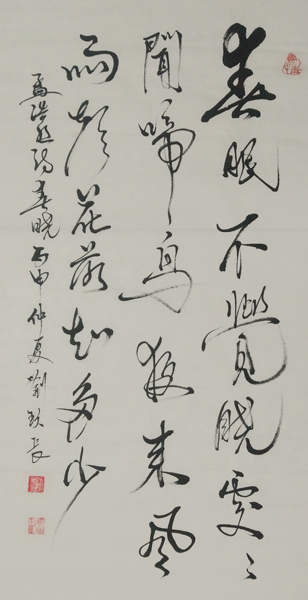 春眠不覺曉處〻
聞啼鳥夜來風
雨聲花落知多少
孟浩然詩春曉丙申仲夏劉長